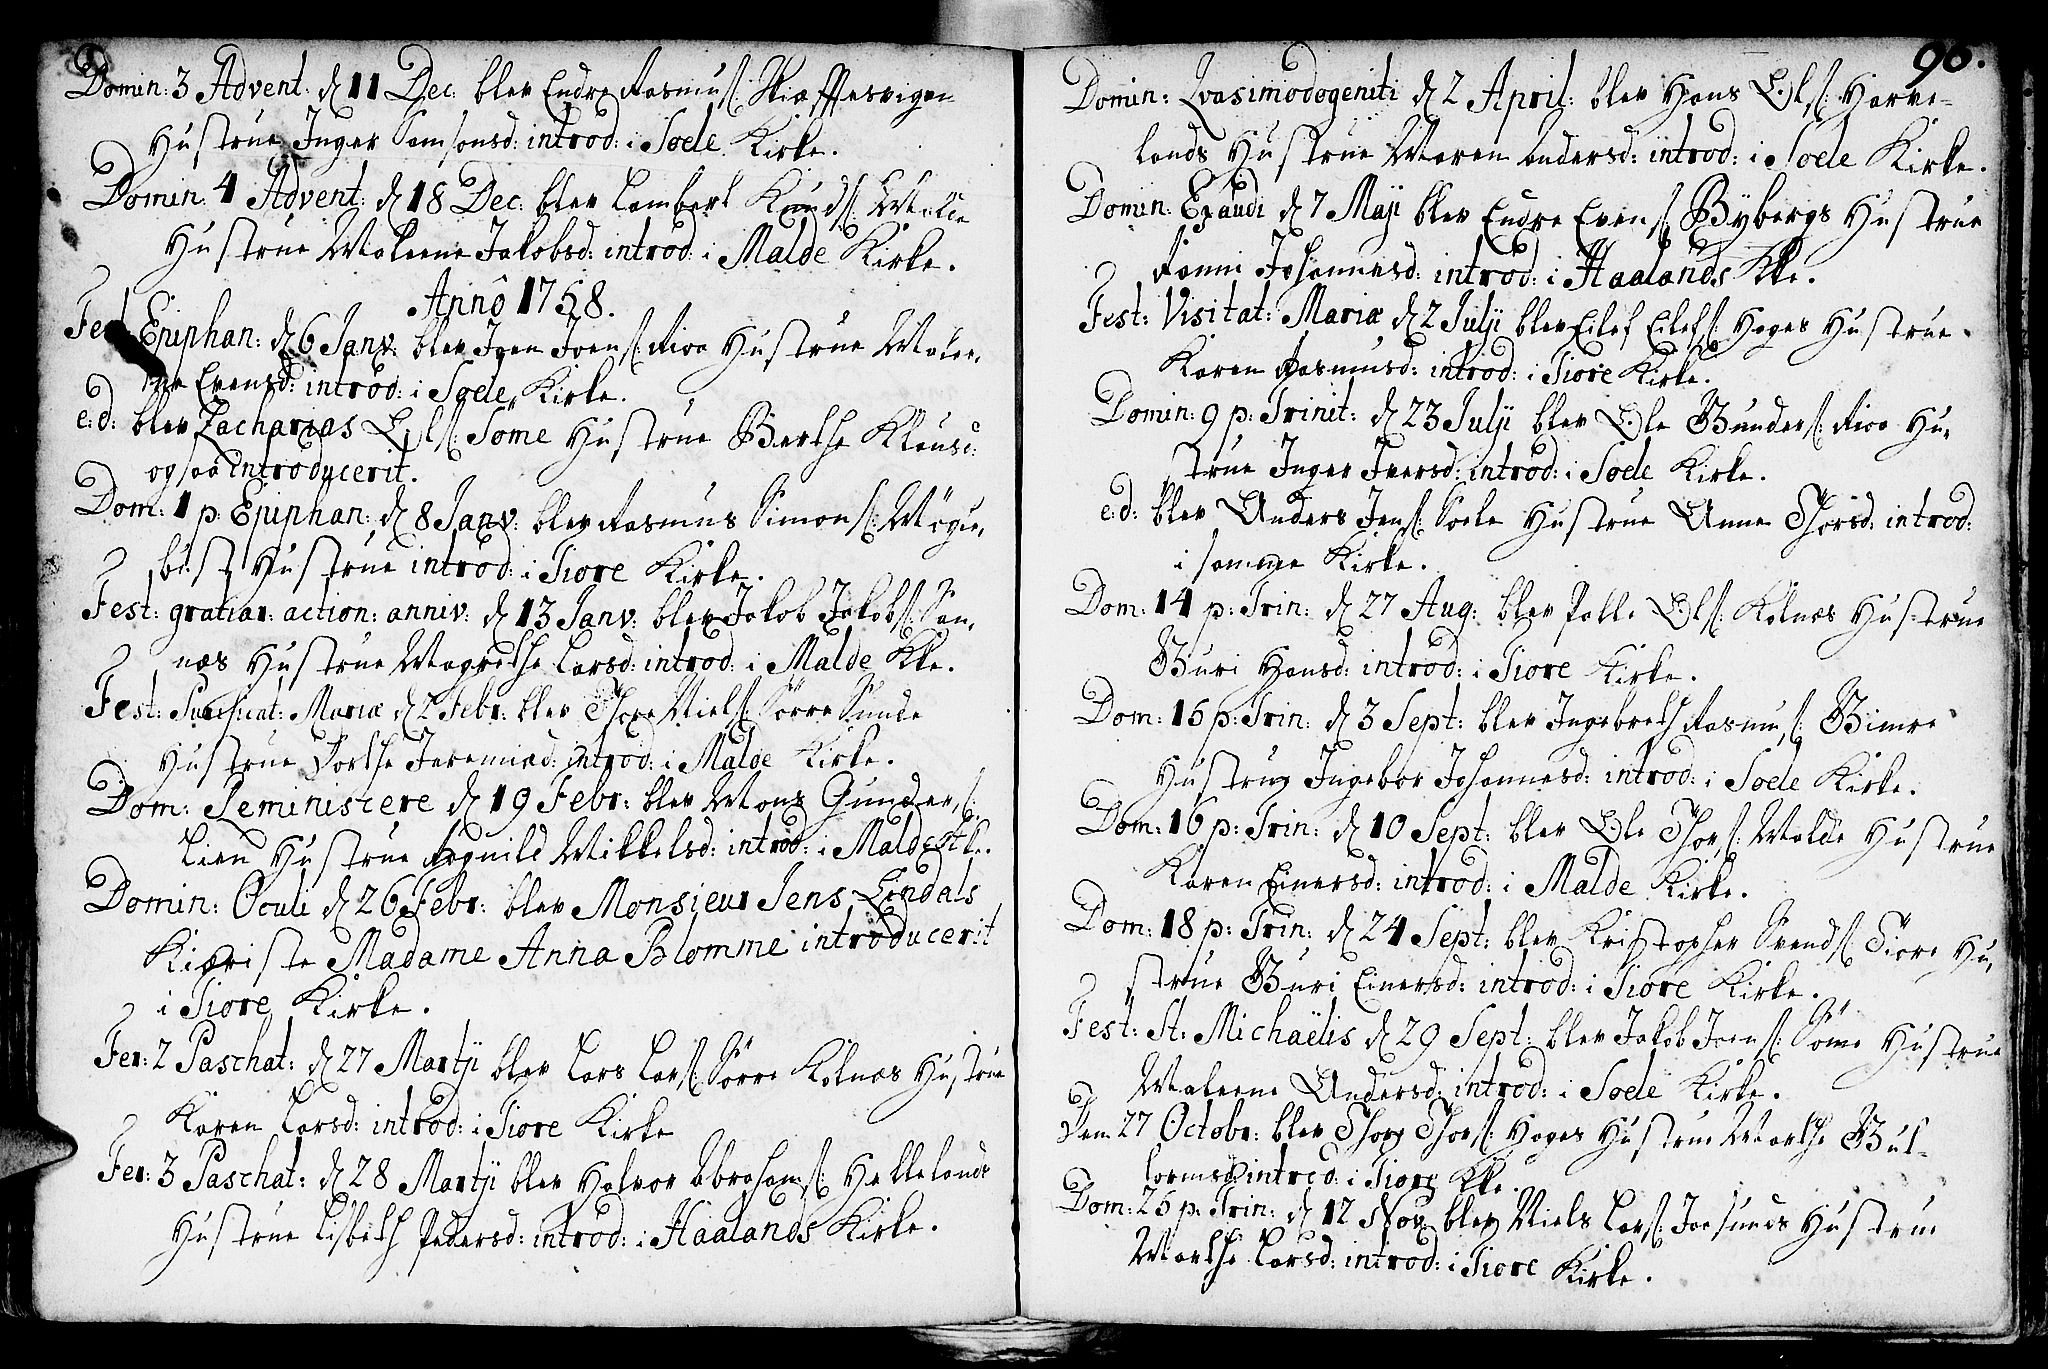 Domin: 3 Advent: d 11 Dec: blev Endre Rasmus: Skieffesvigen
Hustrue Inger Samsonsd: introd: i Soele Kirke.
Domin: 4 Advent: d 18 Dec: blev Lambert Knuds: Malde
Hustrue Maleene Jakobsd: introd: i Malde Kirke.
Anno 1758.
Fest: Epiphan: d 6 Janv: blev Joen Joens: Risa Hustrue Malee,
ne Evensd: introd: i Soele Kirke.
e: d: blev Zacharias Ols: Some Hustrue Berthe Klausd:
ogsaa introducerit.
Dom: 1 p: Epiphan: d 8 Janv: blev Rasmus Simons: Mögle,
bust Hustrue introd: i Tiore Kirke.
Fest: gratiar: action: anniv: d 13 Janv: blev Jakob Jakobs: San,
næs Hustrue Magrethe Larsd: introd: i Malde Kke.
Fest: Purificat: Mariæ d 2 Febr: blev Thore Niels: Sörre Sunde
Hustrue Dorthe Jeremiæd: introd: i Malde Kirke.
Dom: Reminiscere d 19 Febr: blev Mons Gunders:
Lieu Hustrue Ragnild Mikkelsd: introd: i Malde Kke.
Domin: Oculi d 26 Febr: blev Monsieur Jens Lindals
Kieriste Madame Anna Blomme introducerit
i Tiore Kirke.
Fer: 2 Paschat: d 27 Martji blev Lars Lars: Sörre Kolnæs Hustrue
Karen Larsd: introd: i Tiore Kirke
Fer: 3 Paschat: d 28 Martji blev Halvor Abrahams: Hællelands
Hustrue Lisbeth Pedersd: introd: i Haalands Kirke.
96.
Domin: Qvasimodogeniti d 2 April: blev Hans Ols: Harve-
lands Hustrue Maren Andersd: introd: i Soele Kirke.
Domin: Exaudi d 7 Maji blev Endre Evens: Bybergs Hustrue
Ranni Johannesd: introd: i Haalands Kke.
Fest: Visitat: Mariæ d 2 Julji blev Eilef Eilefs: Hages Hustrue.
Karen Rasmusd: introd: i Tiore Kirke.
Domin: 9 p: Trinit: d 23 Julji blev Ole Gunders: Risa Hu,
strue Inger Iversd: introd: i Soele Kirke.
e: d: blev Anders Jens: Soele Hustrue Anne Thorsd: introd:
i samme Kirke.
Dom: 14 p: Trin: d 27 Aug: blev Palle Ols: Kolnæs Hustrue
Guri Hansd: introd: i Tiore Kirke.
Dom: 15 p: Trin: d 3 Sept: blev Ingebreth Rasmus: Gimre
Hustrue Ingebor Johannesd: introd: i Soele Kirke.
Dom: 16 p: Trin: d 10 Sept: blev Ole Thors: Malde Hustrue
Karen Einersd: introd: i Malde Kirke.
Dom: 18 p: Trin: d 24 Sept: blev Kristopher Svends: Tiore Hu,
strue Guri Einersd: introd: i Tiore Kirke.
Fest: St: Michaëlis d 29 Sept: blev Jakob Joens: Söme Hustrue
Maleene Andersd: introd: i Soele Kirke.
Den 27 Octobr: blev Thore Thors: Hages Hustrue Marthe Gut-
tormsd introd: i Tiore Kke.
Dom: 25 p: Trin: d 12 Nov: blev Niels Lars: Joesunds Hustrue
Marthe Larsd: introd: i Tiore Kirke.